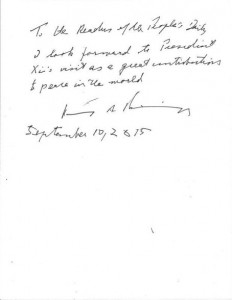 To the Readers of the People's Daily
I look forward to President
Xi's visit as a great contribution
to peace in the world
September 10, 2015